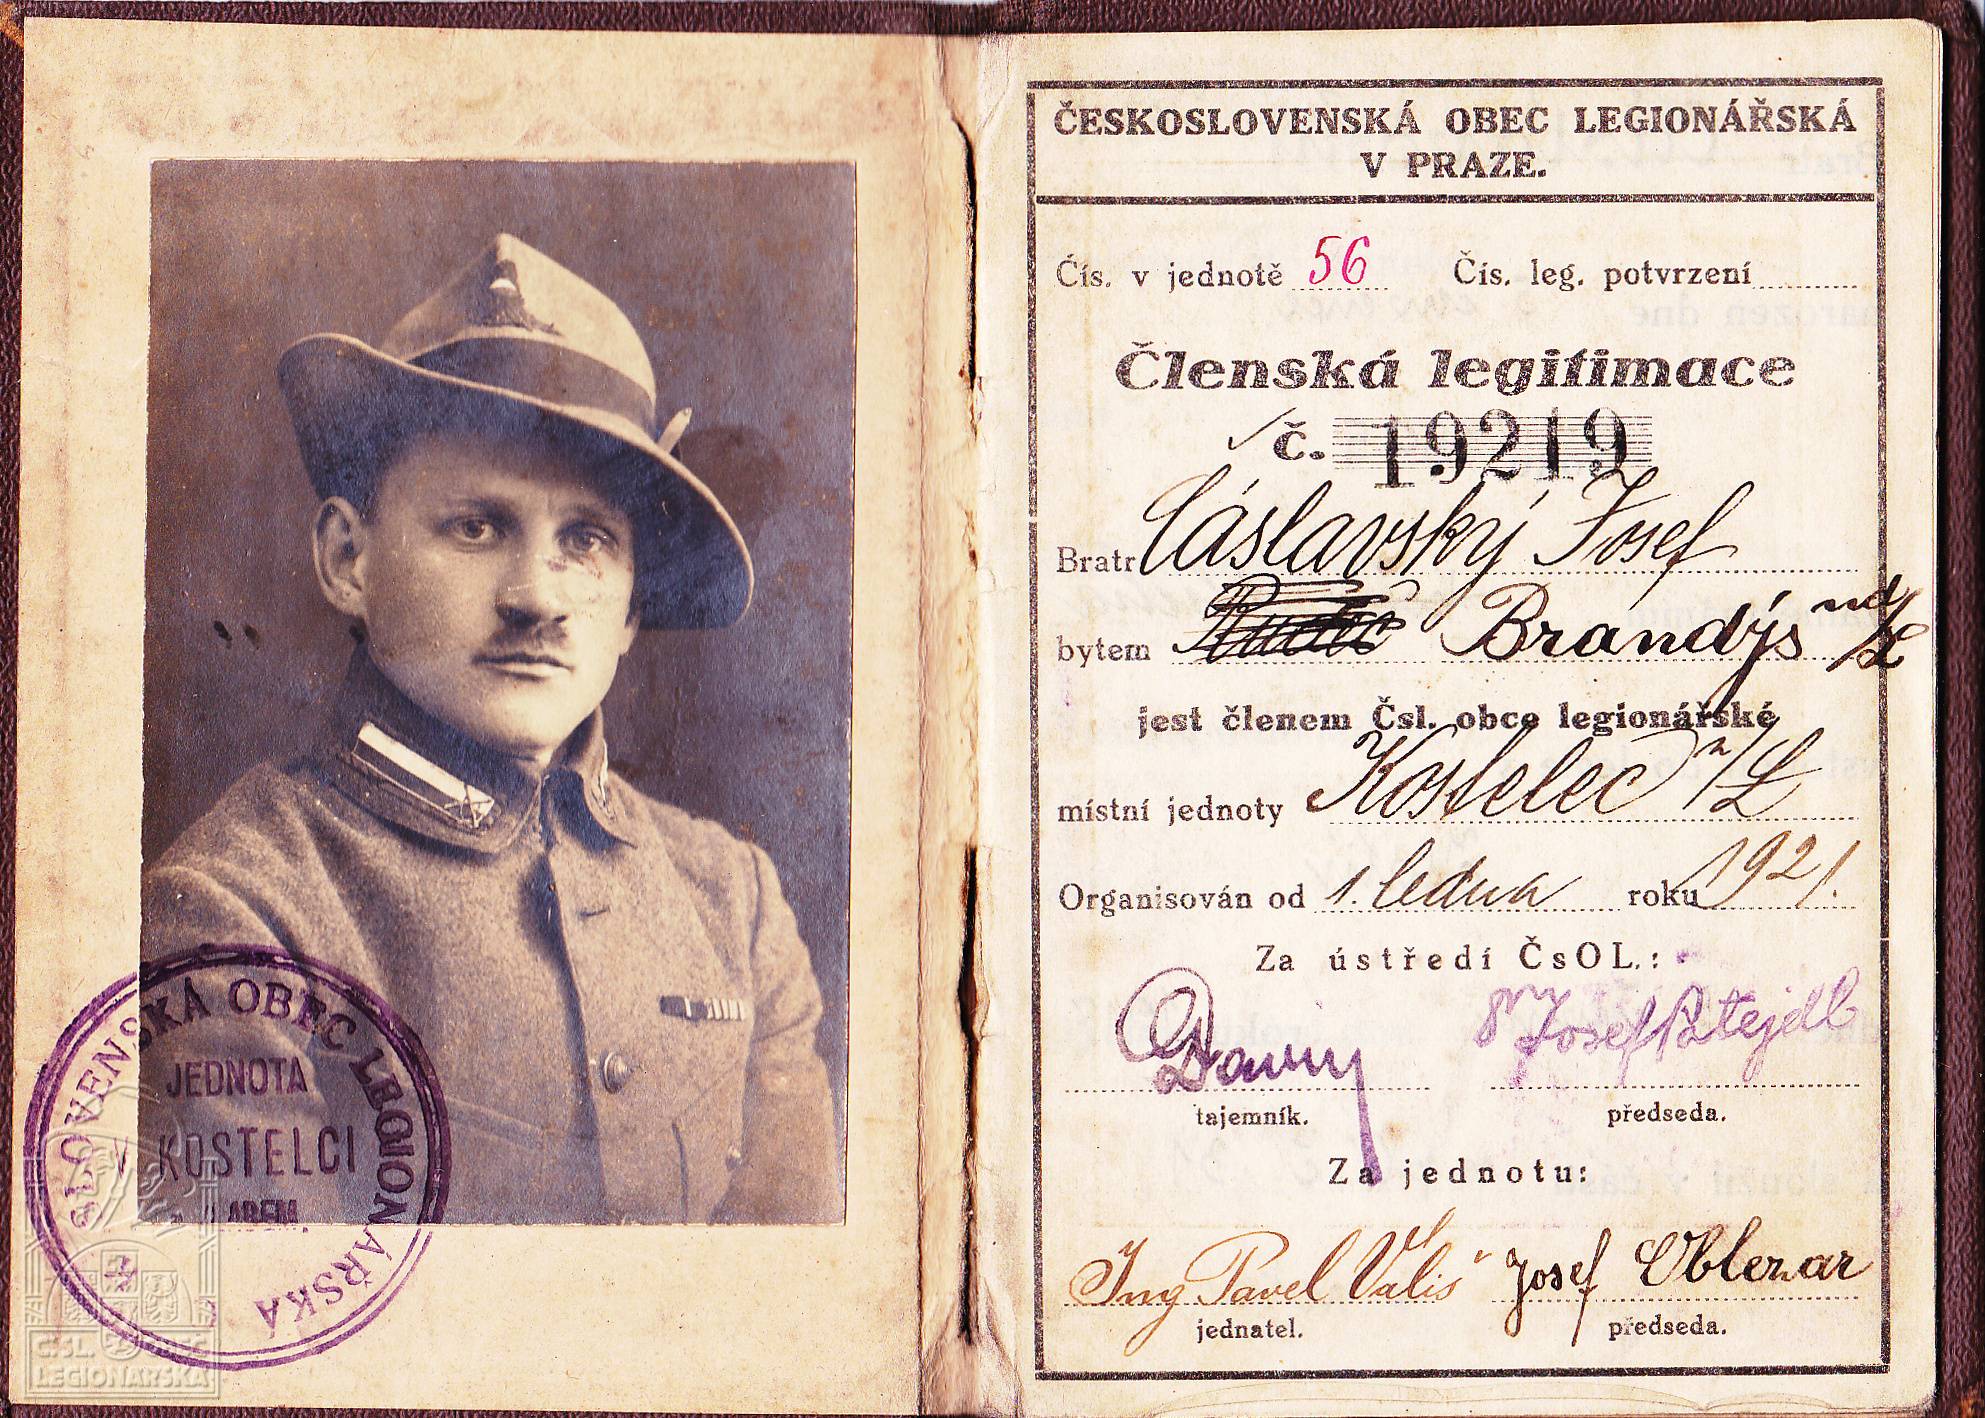 ČESKOSLOVENSKÁ OBEC LEGIONÁŘSKÁ
V PRAZE.
Čís. v jednotě 56 Čís. leg. potvrzení
Členská legitimace
č. 19219
Bratr Čáslavský Josef
bytem Brandýs nd/L
jest členem Čsl. obce legionářské
místní jednoty Kostelec n/L
Organisován od 1. ledna roku 1921.
Za ústředí ČsOL.:
Dr Josef Patejdl
tajemník. předseda.
Za jednotu:
Ing Pavel Vališ Josef Oblezar
jednatel. předseda.
SLOVENSKÁ OBEC LEGIONÁŘSKÁ
JEDNOTA
V KOSTELCI
n. LABEM.
ČSL. OBEC
LEGIONÁŘSKÁ